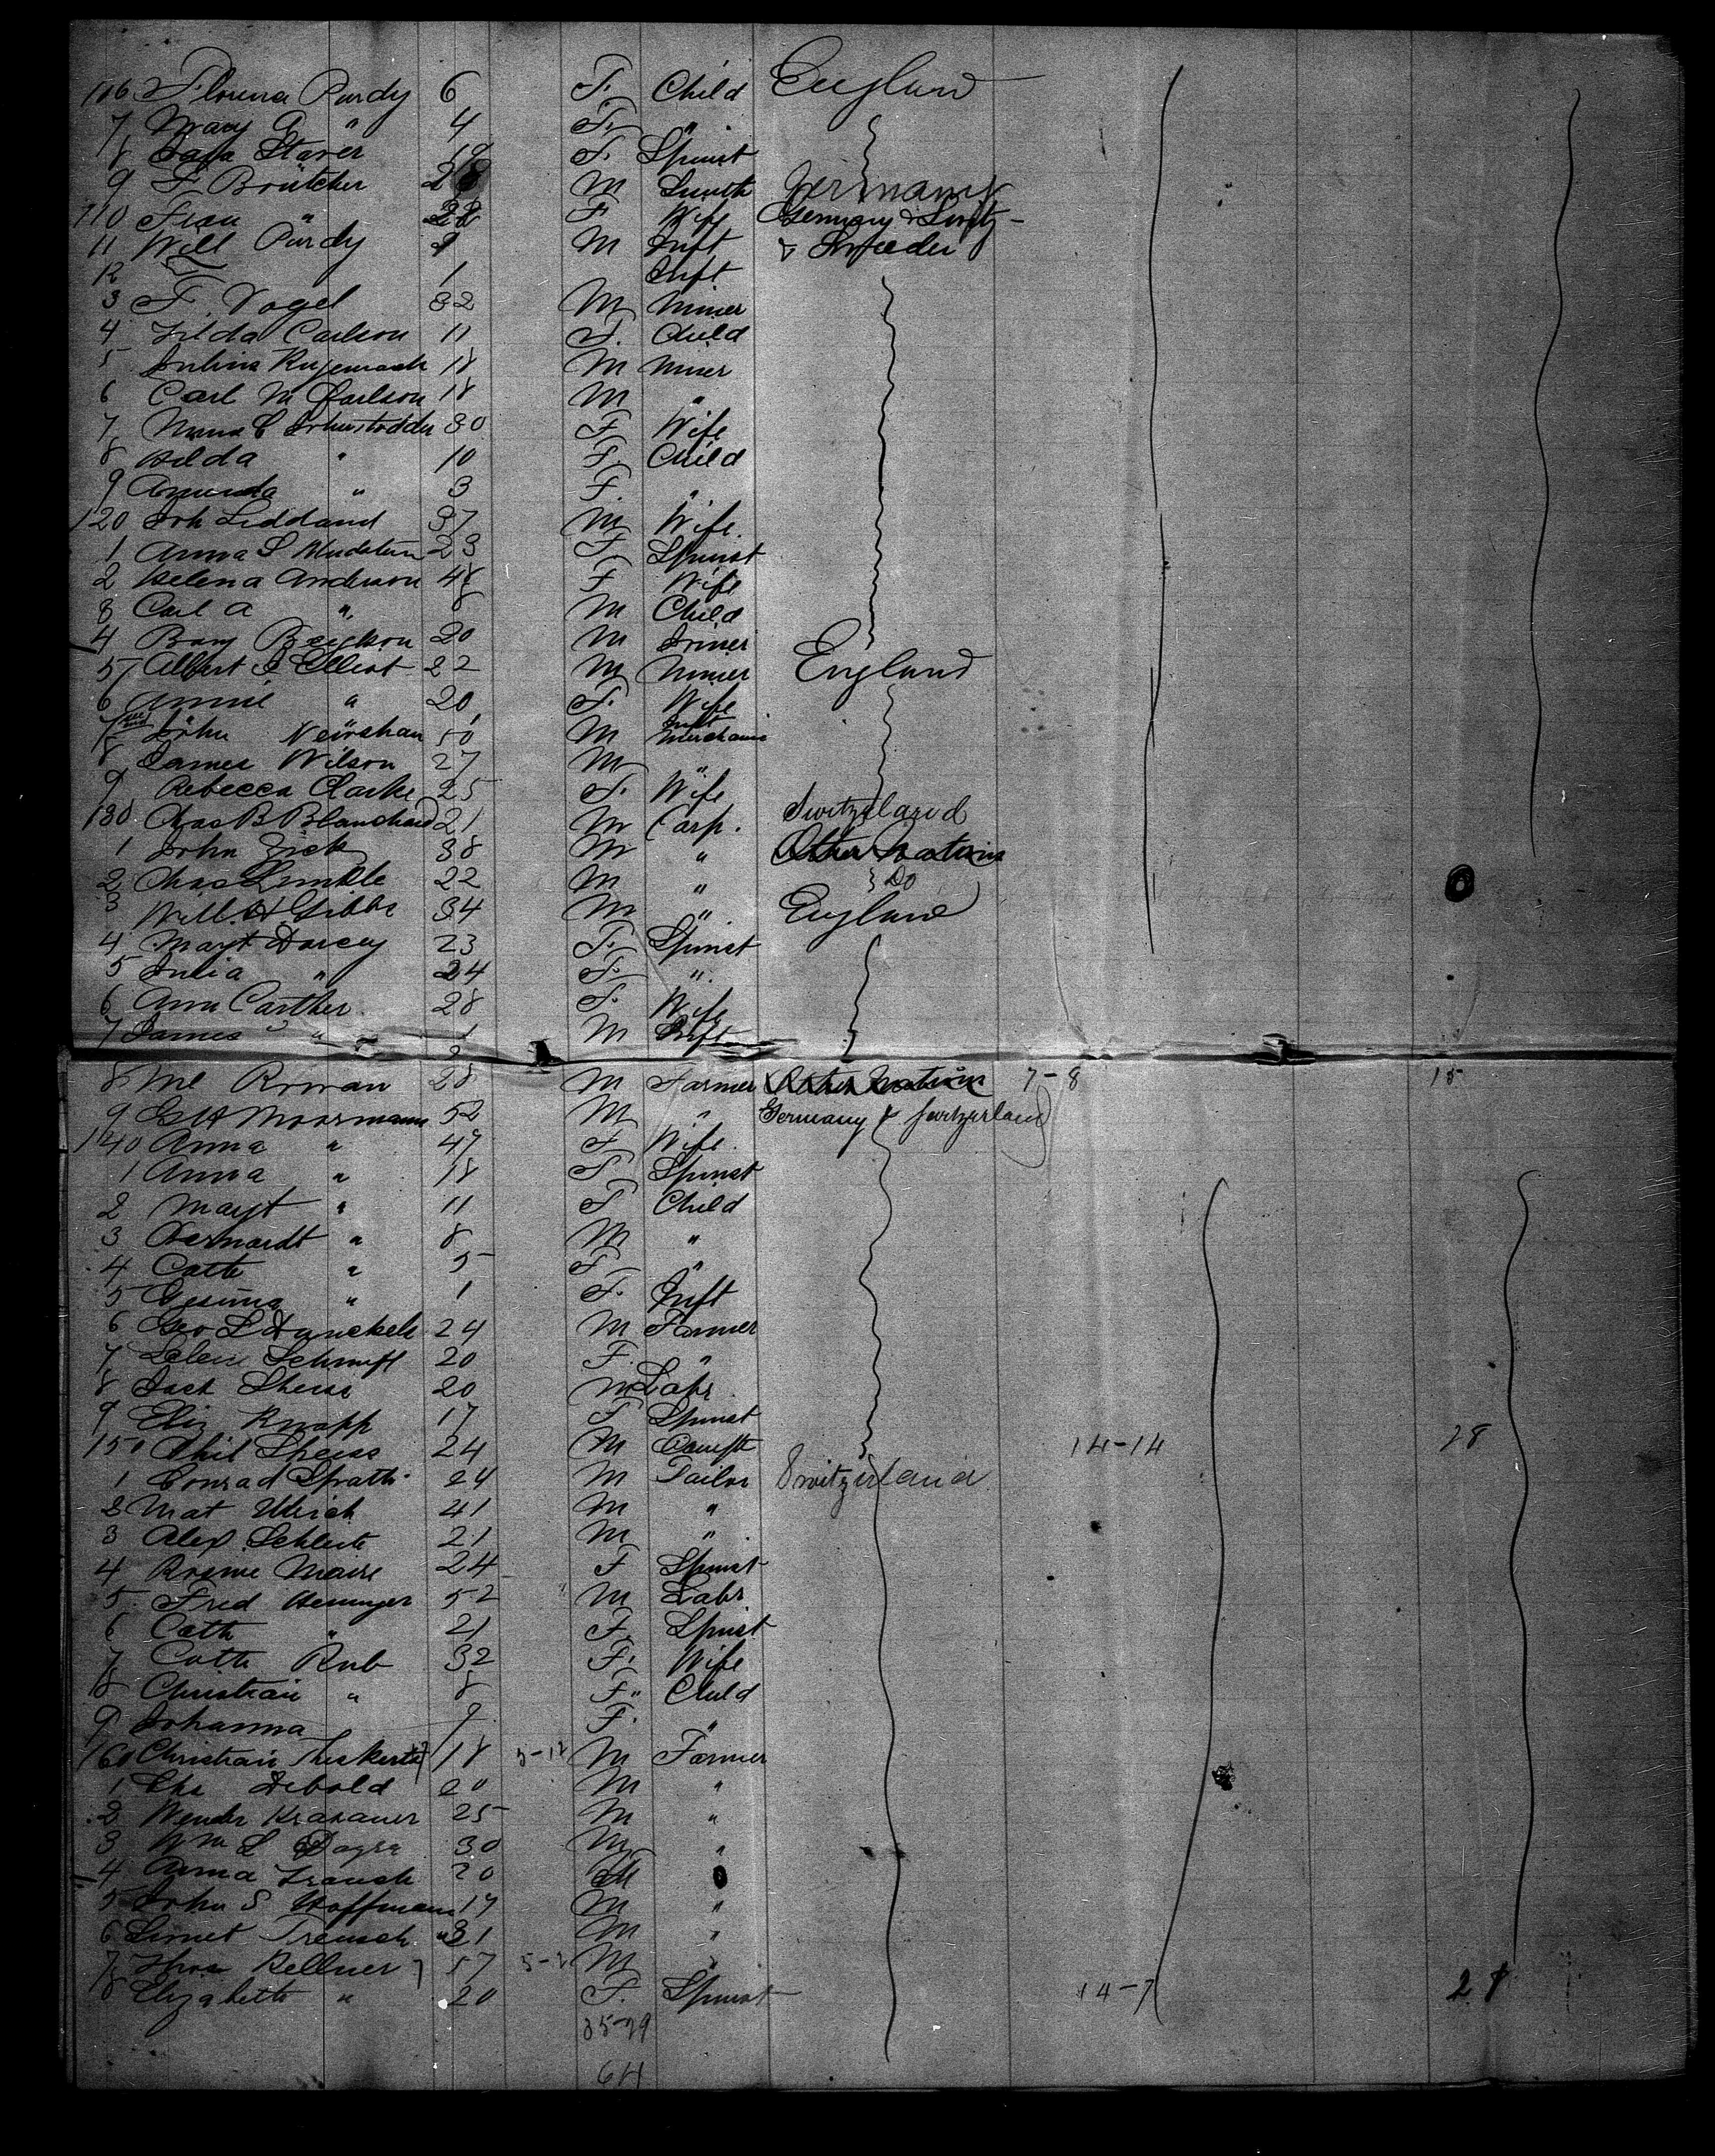 106 Florena Purdy 6 F. Child England
7 Mary A " 4 F. "
8 Sara Starer 19 F. Spinst
9 F. Brütcher 28 M Smith Germany
110 Frau " 28 F Wife Germany & Switz-
11 Will Purdy 9 M Inft & Sweeden
12 1 Inft.
3 F. Vogel 32 M Miner
4 Hilda Carlson 11 F. Child
5 Julius 18 M Miner
6 Carl M Carlson 18 M "
7 C 30 F Wife
8 Hilda " 10 F. Child
9 Amanda " 3 F. "
120 Joh 37 M Wife
1 Anna S 23 F. Spinst
2 Helena Anderson 48 F Wife
3 Carl A " 8 M Child
4 20 M
5 Albert J Elliot 22 M Miner England
6 Annie " 20 F. Wife
7 John 50 M Merchant
8 James Wilson 27 M "
9 Rebecca Clarke 25 F. Wife
130 Chas B Blanchard 21 M Carp. Switzeland
1 John Zick 38 M " Other Nations
2 Chas 22 M " Do
3 Will. H Gibbs 34 M " England
4 Mayt Darcey 23 F. Spinst
5 Julia " 24 F. "
6 Ann Carther 28 F. Wife
7 James " 1 M Inft
8 Rowan 28 M Farmer Other Nations 7-8 15
9 G H Moormann 52 M " Germany & Switzerland
140 Anna " 47 F Wife
1 Anna " 18 F Spinst
2 Mayt " 11 F Child
3 Bernardt " 8 M "
4 Cath " 5 F "
5 Gesina " 1 F. Inft
6 Geo L 24 M Farmer
7 20 F. "
8 Sheiss 20 M Labr
9 Eliz Knapp 17 F Spinst
150 Phil Sheiss 24 M 14-14 28
1 Conrad Spath 24 M Tailor Switzerland
2 Mat Ulrich 41 M "
3 Alex. 21 M "
4 Rosine Maire 24 F Spinst
5 Fred Heninger 52 M Labr
6 Cath " 21 F. Spinst
7 Cath Rub 32 F. Wife
8 Christian " 8 F" Child
9 Johanna 9 F. "
160 Christian 18 5-12 M Farmer
1 Debold 20 M "
2 25 M "
3 Wm L 30 M "
4 Anna 20 M
5 John S Hoffmann 17 M "
6 31 M "
7 Kellner 57 M "
8 Elizabeth " 20 F. Spinst 14-7
35-29
64